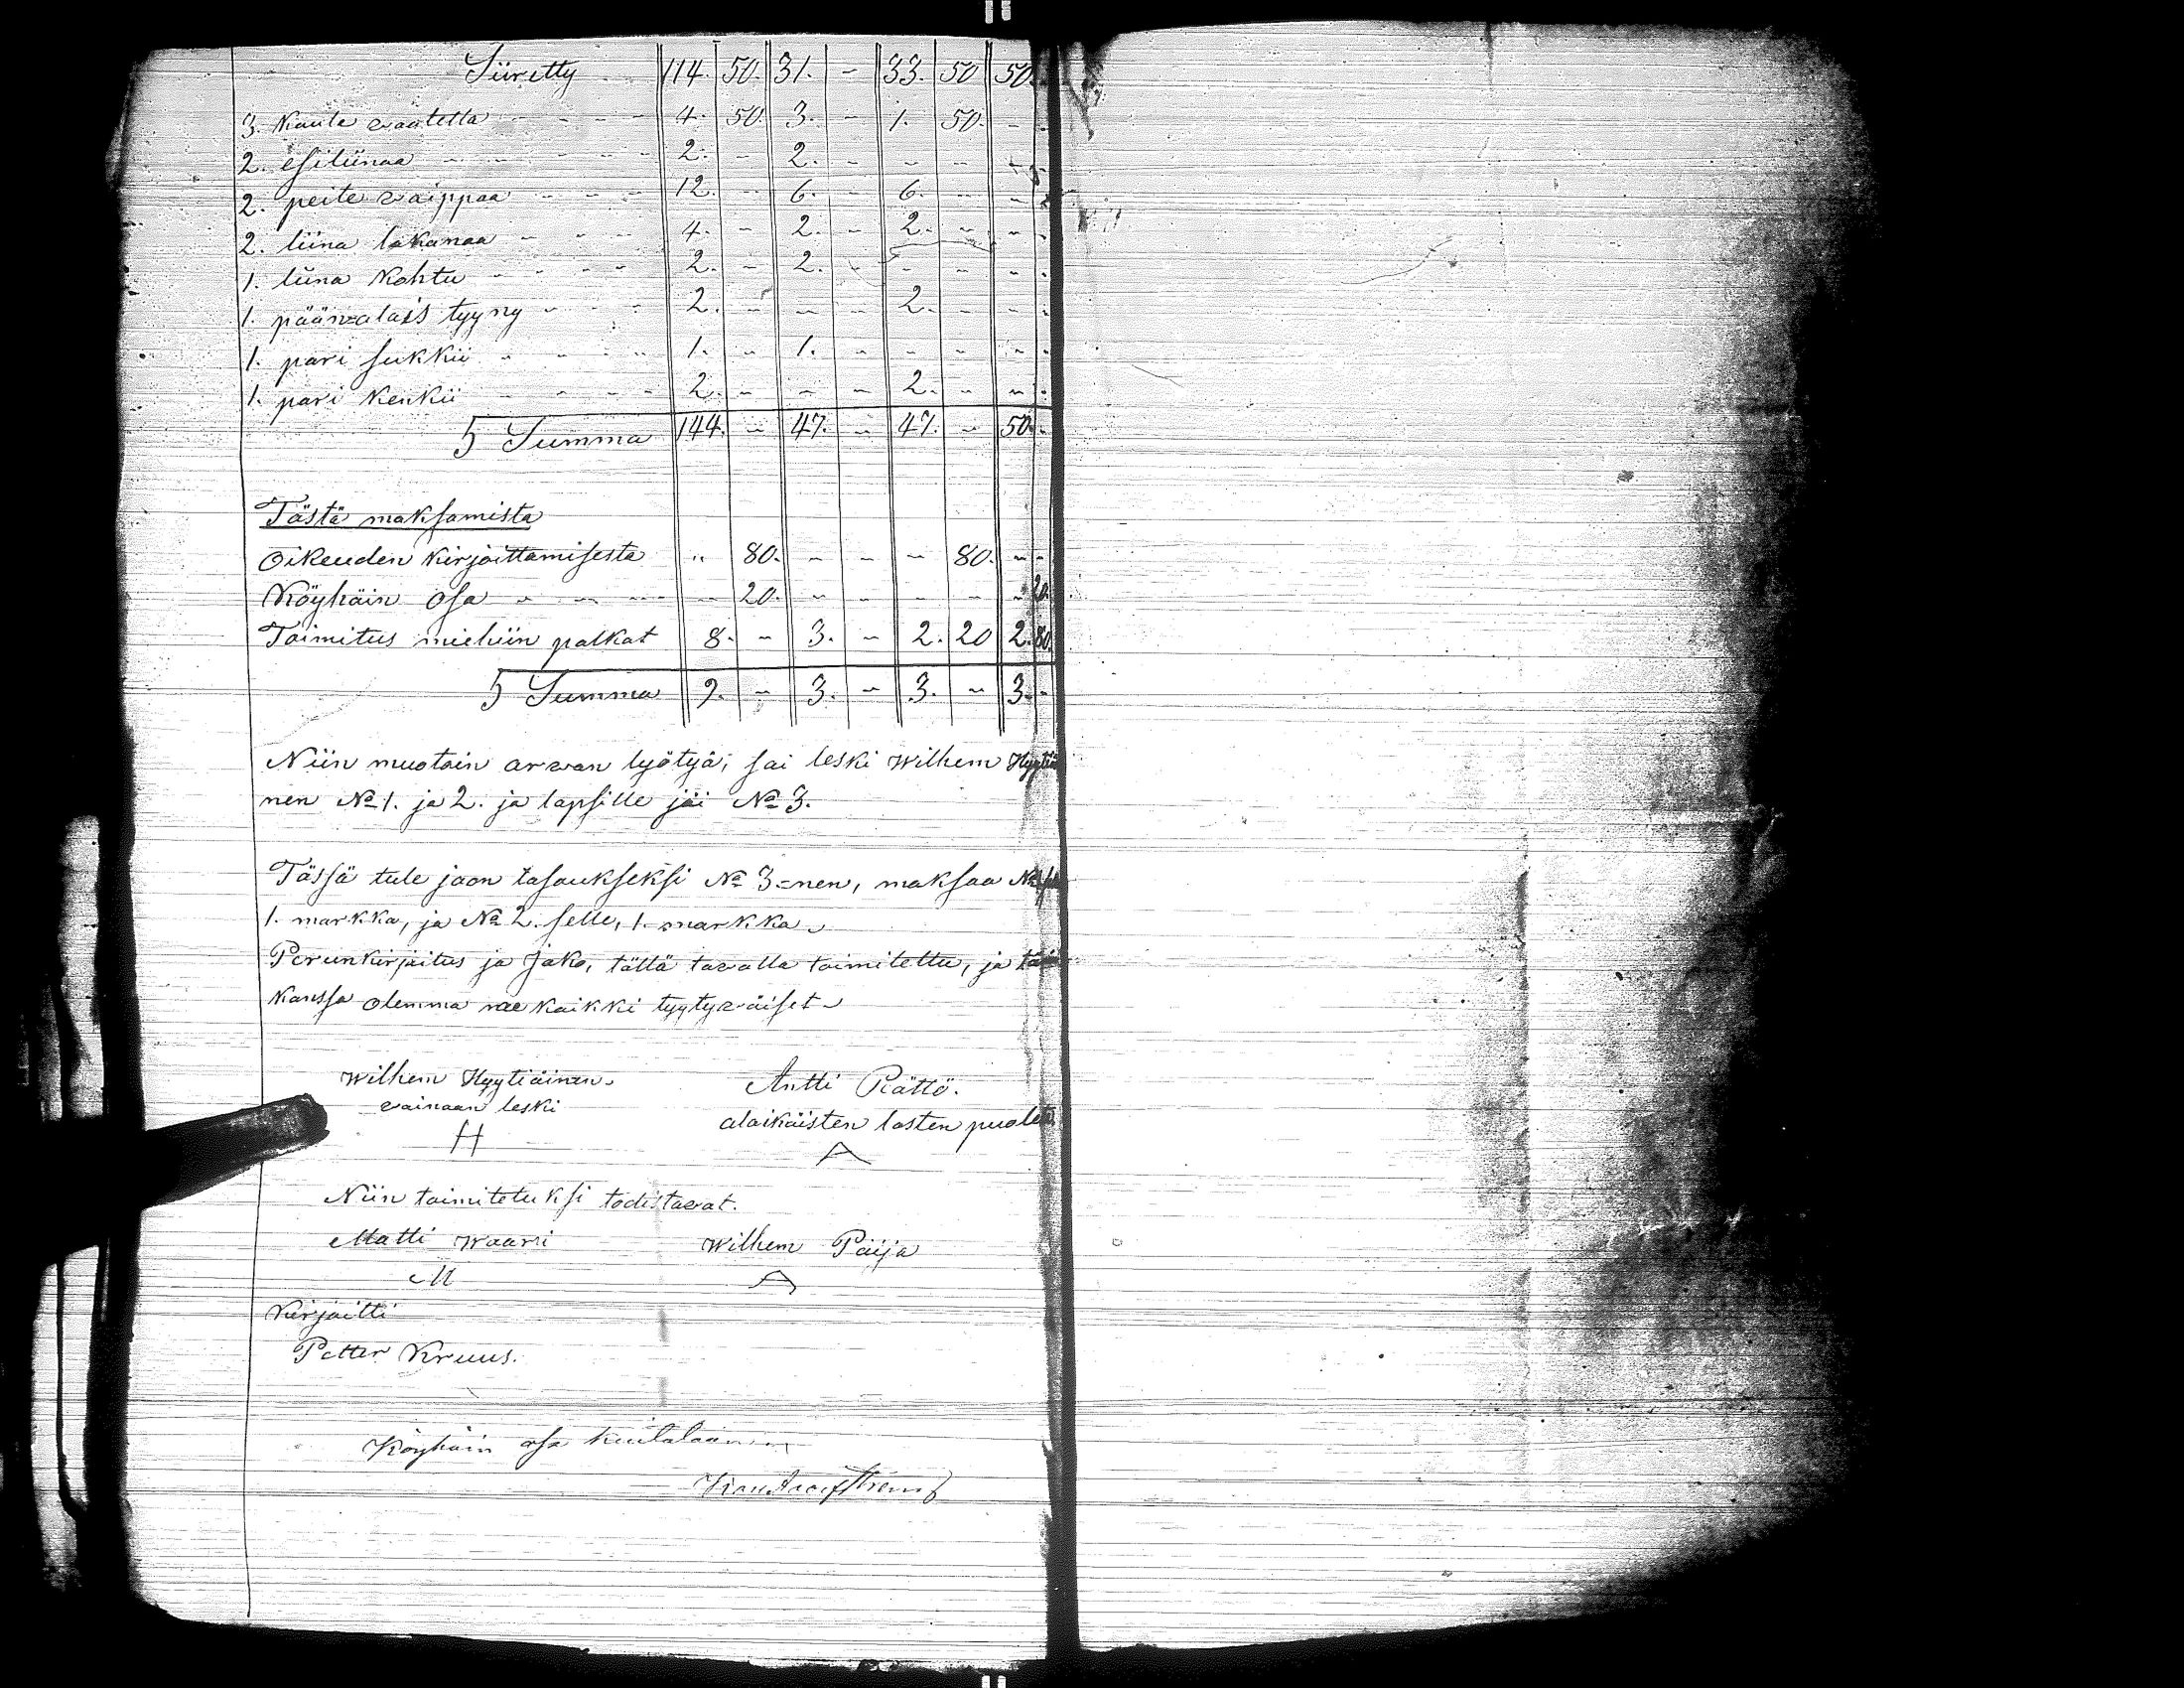 Siiretty 114. 50. 31. - 33. 50 50.
3. Kaula vaatetta - - - - 4. 50. 3. - 1. 50. - -
2. esiliinaa - - - - - 2. - 2. - - - - -
2. peite vaippaa - - - 12. - 6. - 6. - - -
2. liina lakanaa - - - 4. - 2. - 2. - - -
1. liina Kohtu - - - - 2. - 2. - - - - -
1. päänalais tyyny - - - 2. - - - 2. - - -
1. pari sukkii - - - - 1. - 1. - - - - -
1. pari Kenkii - - - - 2. - - - 2. - - -
Summa 144. - 47. - 47. - 50. -
Tästä maksamista
Oikeuden Kirjoittamisesta " 80. - - - 80. - -
Köyhäin Osa - - - - 20. - - - - - 20.
Toimitus miehiin palkat 8. - 3. - 2. 20 2. 80.
Summa 9. - 3. - 3. - 3. -
Niin muotoin arvan lyötyä, sai leski Wilhem Hyytiäi
nen No 1. ja 2. ja lapsille jäi No 3.
Tässä tule jaon tasaukseksi No 3=nen, maksaa
1. markka, ja No 2. selle, 1. markka
Perunkirjoitus ja Jako, tällä tavalla toimitettu, ja
Kanssa olemma me kaikki tyytyväiset
Wilhem Hyytiäinen Antti Rättö.
vainaan leski alaikäisten lasten puolesta
H A
Niin toimitetuksi todistavat.
Matti Waari Wilhem Päijä
M A
Kirjoitti
Petter Kruus.
Köyhäin osa kuitataan